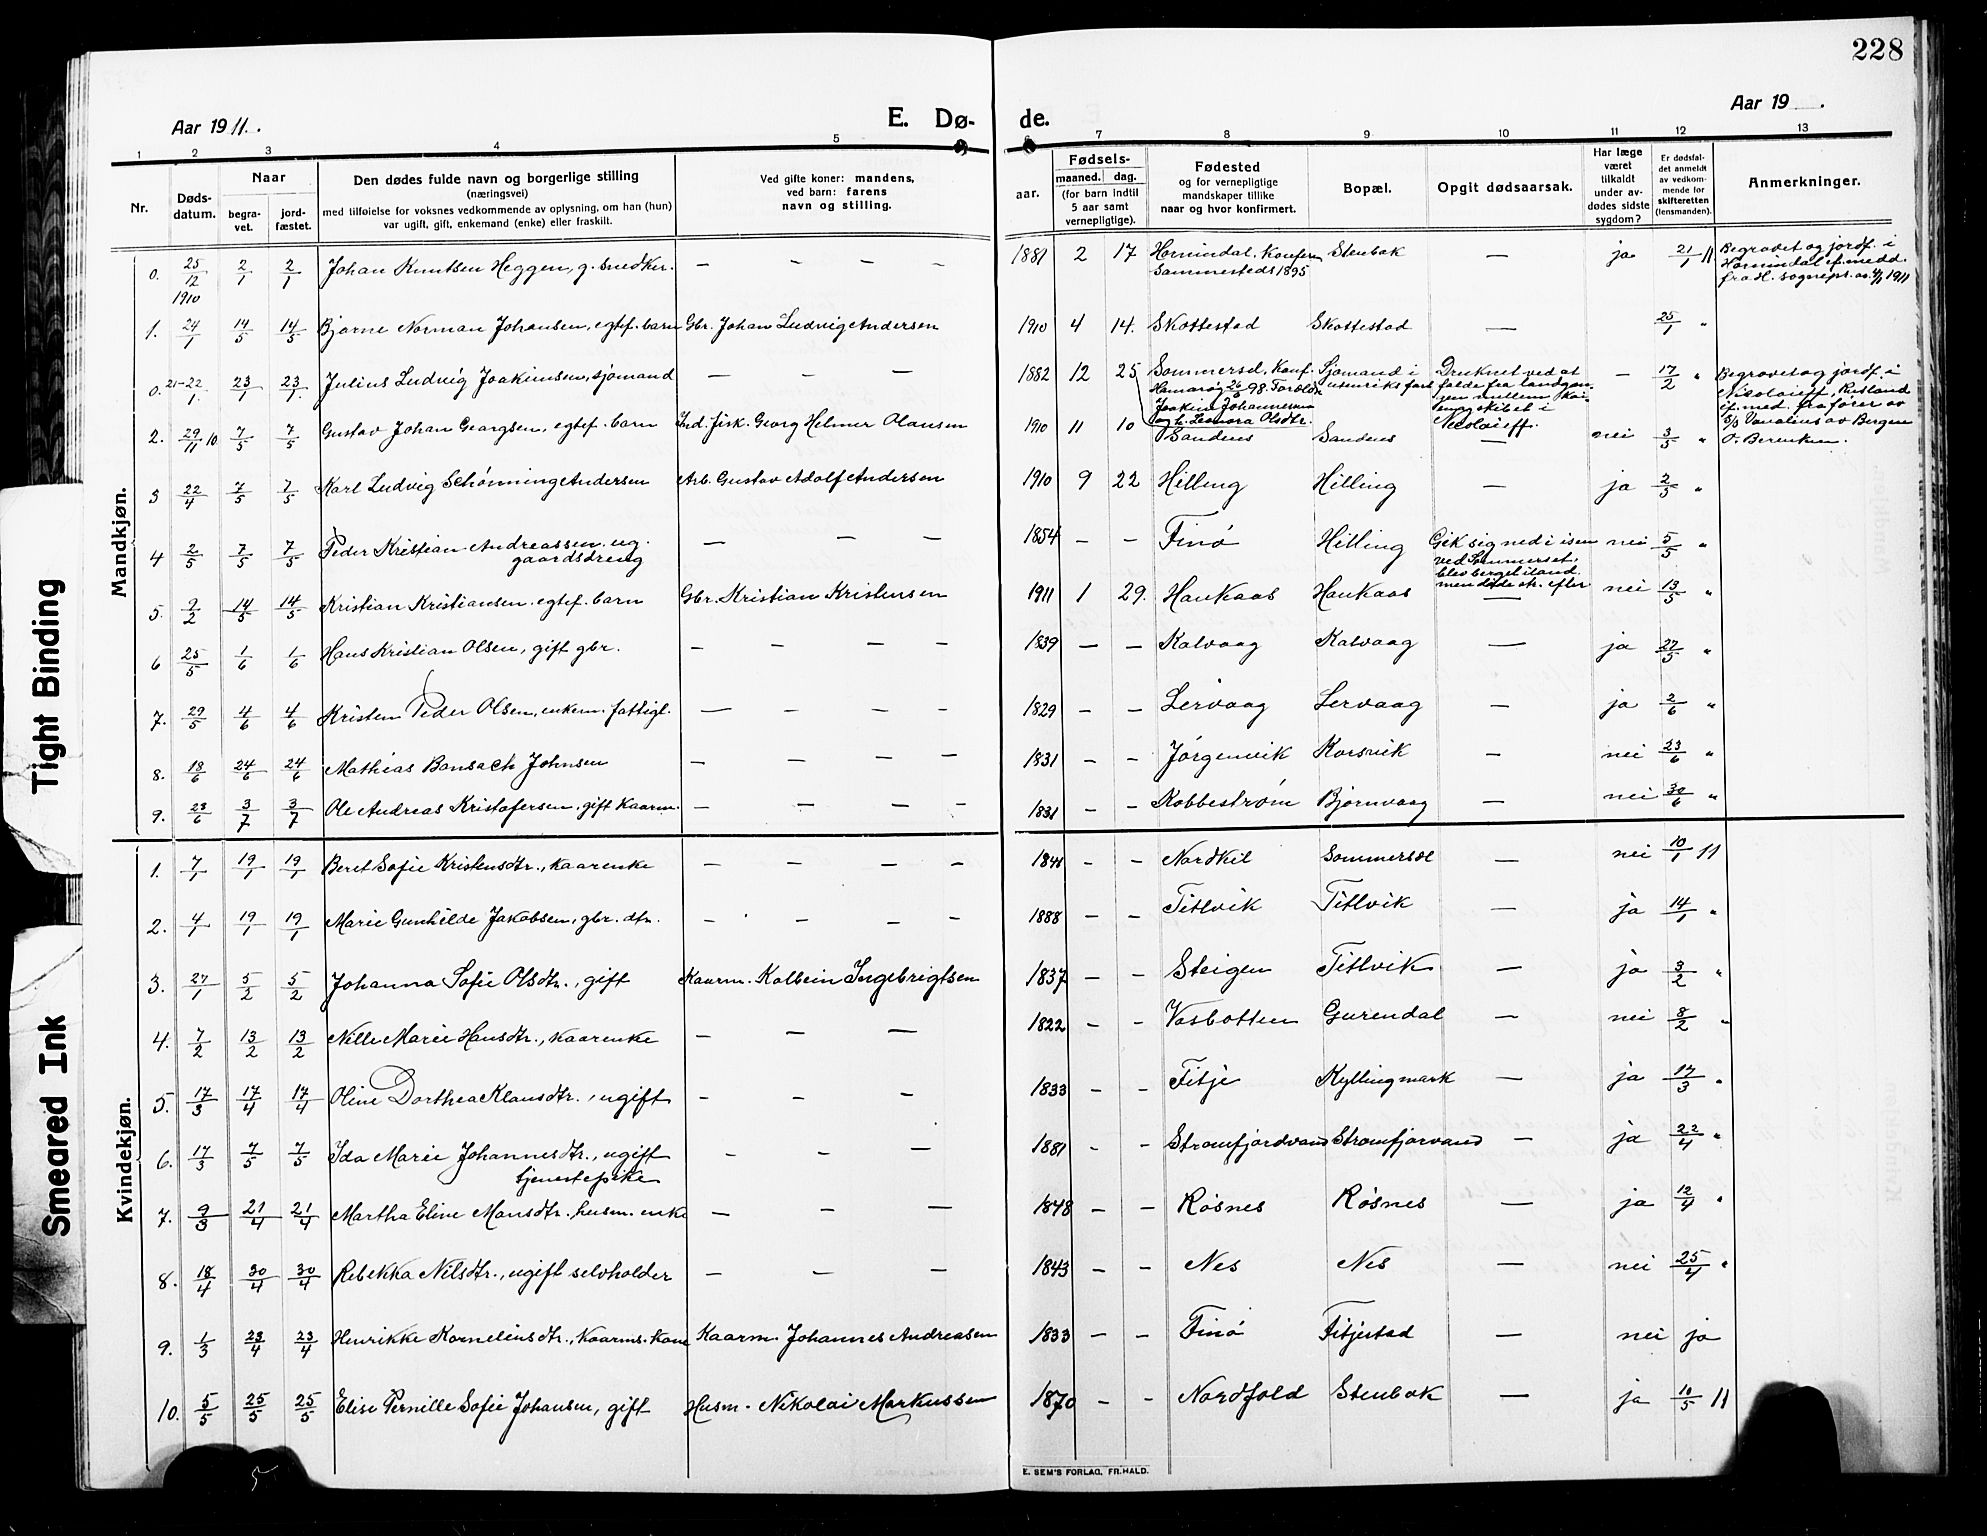 228
Aar 1911.
E. Dø-
de.
Aar 19 .
1 2 3 4 5 6 7 8 9 10 11 12 13
Nr.
Døds-
datum.
Naar
begra-
vet.
jord-
fæstet.
Den dødes fulde navn og borgerlige stilling
(næringsvei)
med tilføielse for voksnes vedkommende av oplysning, om han (hun)
var ugift, gift, enkemand (enke) eller fraskilt.
Ved gifte koner: mandens,
ved barn: farens
navn og stilling.
aar.
Fødsels-
maaned. dag.
(for barn indtil
5 aar samt
vernepligtige).
Fødested
og for vernepligtige
mandskaper tillike
naar og hvor konfirmert.
Bopæl.
Opgit dødsaarsak.
Har læge
været
tilkaldt
under av-
dødes sidste
sygdom?
Er dødsfal-
det anmeldt
av vedkom-
mende for
skifteretten
(lensmanden).
Anmerkninger.
Mandkjøn.
0. 25/12 1910 2/1 2/1 Johan Knutsen Heggen, g. snedker. — — — — 1881 2 17 Hornindal. Konferm sammesteds 1895 Stenbak — ja 21/1 11 Begravet og jordf. i Hornindal if. medd. fra dl. sognepr. av 4/1 1911
1. 24/1 14/5 14/5 Bjarne Norman Johansen, egtef. barn Gbr. Johan Ludvig Andersen 1910 4 14. Skottestad Skottestad — 25/1 "
0. 21-22/1 23/1 23/1 Julius Ludvig Joakimsen, sjømand — — — 1882 12 25 Sommersel, Konf. Hamarøy 26/6 98. Foreldr. Joakim Johannesen og h. Leonora Olsdtr. Sjømand i utenriks fart Druknet ved at falde fra landgangen mellem kai og skibet i Nicolaieff. — 17/2 " Begravet og jordf. i Nicolaieff, Rusland if. med. fra fører av S/S Vanalius av Bergen O. Berentsen.
2. 29/11 10 7/5 7/5 Gustav Johan Georgsen, egtef. barn Ind. fisk. Georg Helmer Olausen 1910 11 10 Sandnes Sandnes — nei 3/5 "
3 22/4 7/5 7/5 Karl Ludvig Schønning Andersen Arb. Gustav Adolf Andersen 1910 9 22 Hilling Hilling — ja 2/5 "
4 2/5 7/5 7/5 Peder Kristian Andreassen. ug. gaardsdreng — — — 1854 — — Finø Hilling Gik sig ned i isen ved Sommerset. blev berget iland. men døde str. efter nei 5/5 "
5. 9/2 14/5 14/5 Kristian Kristiansen. egtef. barn Gbr. Kristian Kristensen 1911 1 29. Haukaas Haukaas — nei 13/5 "
6 25/5 1/6 1/6 Hans Kristian Olsen, gift gbr. — — — — 1839 — — Kalvaag Kalvaag — ja 27/5 "
7. 29/5 4/6 4/6 Kristen Peder Olsen, enkem. fattigl. — — — — 1829 — — Lervaag Lervaag — ja 2/6 "
8. 18/6 24/6 24/6 Mathias Bansach Johnsen — — — — 1831 — — Jørgenvik Korsvik — nei 23/6 "
9. 28/6 3/7 3/7 Ole Andreas Kristofersen, gift kaarm. — — — — 1831 — — Kobbestrøm Bjørnvaag — nei 30/6 "
Kvindekjøn.
1. 7/1 19/1 19/1 Beret Sofie Kristensdtr., kaarenke — — — — 1841 — — Nordkil Sommersel — nei 10/1 11
2. 4/1 19/1 19/1 Marie Gunhilde Jakobsen, gbr. dtr. — — — — 1888 — — Titlvik Titlvik — ja 14/1 "
3. 27/1 5/2 5/2 Johanna Sofie Olsdtr., gift Kaarm. Kolbein Ingebrigtsen 1837 — — Steigen Titlvik — ja 3/2 "
4. 7/2 13/2 13/2 Nille Marie Hansdtr., kaarenke — — — 1822 — — Vasbotten Gurendal — nei 8/2 "
5. 17/3 17/4 17/4 Oline Dorthea Klausdtr., ugift — — — 1833 — — Fitje Kyllingmark — ja 17/3 "
6. 17/3 7/5 7/5 Ida Marie Johannesdtr., ugift tjenestepike — — — 1881 — — Strømfjordvand Strømfjorvand — ja 22/4 "
7. 9/3 21/4 21/4 Martha Eline Mansdtr. husm. enke — — — 1848 — — Røsnes Røsnes — ja 12/4 "
8. 18/4 30/4 30/4 Rebekka Nilsdtr., ugift selvholder — — — 1843 — — Nes Nes — nei 25/4 "
9. 1/3 23/4 23/4 Henrikke Kornelius dtr., Kaarms. kone Kaarm. Johannes Andreasen 1833 — — Finø Fitjestad — nei ja
10. 5/5 25/5 25/5 Elise Pernille Sofie Johansen, gift Husm. Nikolai Markussen 1870 — — Nordfold Stenbak — ja 10/5 11
E. SEM'S FORLAG, FR.HALD.
Tight Binding
Smeared Ink
5